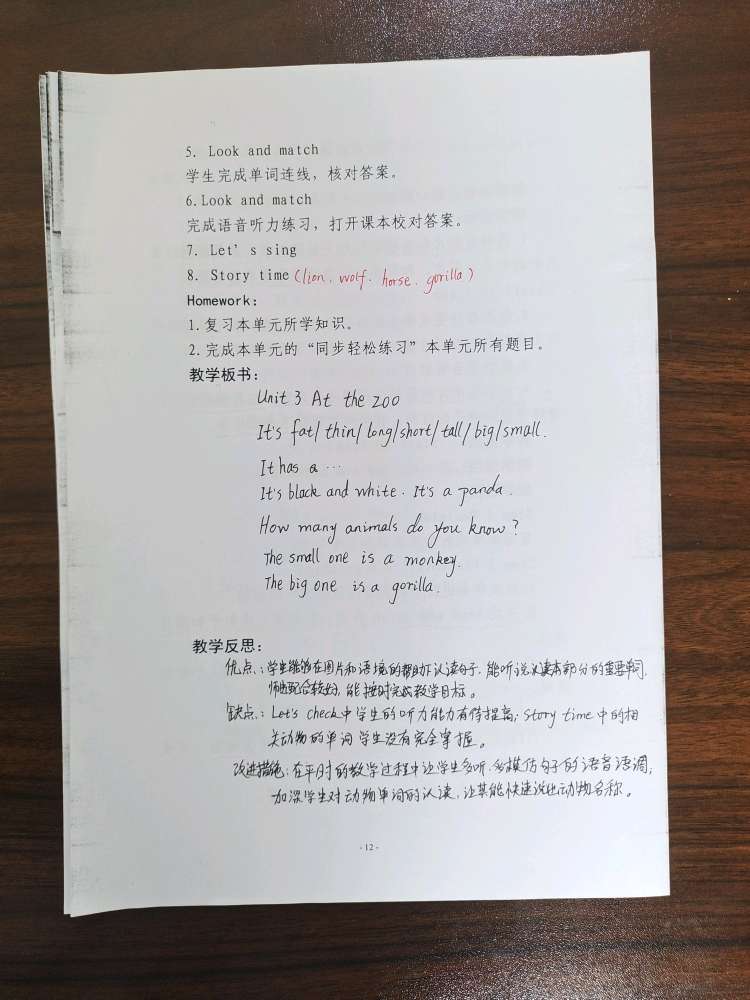 5. Look and match
学生完成单词连线，核对答案。
6.Look and match
完成语音听力练习，打开课本校对答案。
7. Let's sing
8. Story time (lion、wolf、horse、gorilla)
Homework：
1.复习本单元所学知识。
2.完成本单元的“同步轻松练习”本单元所有题目。
教学板书：
Unit 3 At the zoo
It's fat/ thin/ long/short/tall/big/small.
It has a …
It's black and white. It's a panda.
How many animals do you know?
The small one is a monkey.
The big one is a gorilla.
教学反思：
优点：学生能够在图片和语境的帮助下认读句子，能听说认读本部分的重要单词，
师生配合较好，能按时完成教学目标。
缺点：Let's check中学生的听力能力有待提高；Story time中的相
关动物的单词学生没有完全掌握。
改进措施：在平时的教学过程中让学生多听、多模仿句子的语音语调，
加深学生对动物单词的认读，让其能快速说出动物名称。
- 12 -